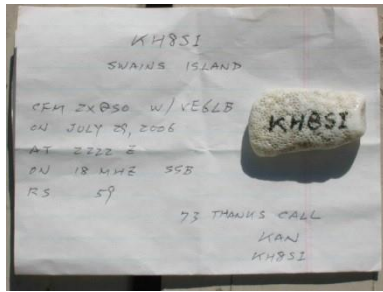 KH8SI
SWAINS ISLAND
CFM 2XQSO W/ VE6LB
ON JULY 29, 2006
AT 2222 Z
ON 18 MHZ SSB
RS 59
73 THANKS CALL
KAN
KH8SI
KH8SI